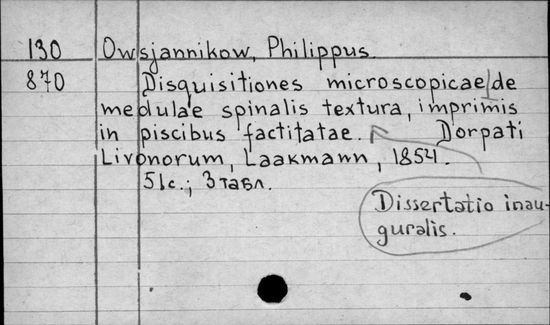 130 Owsjannikow, Philippus.
870 Disquisitiones microscopicae de
medulae spinalis textura, imprimis
in piscibus factitatae. Dorpati
Livonorum, Laakmann, 1854.
51c.; 3 табл.
Dissertatio inau-
guralis.